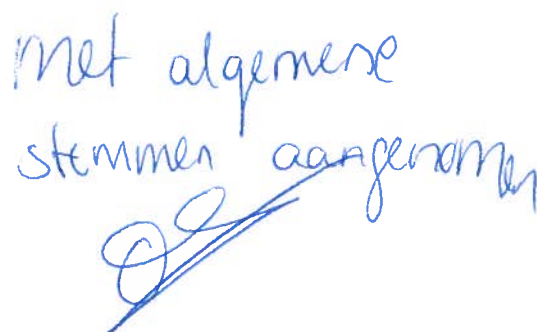 Met algemene
stemmen aangenomen